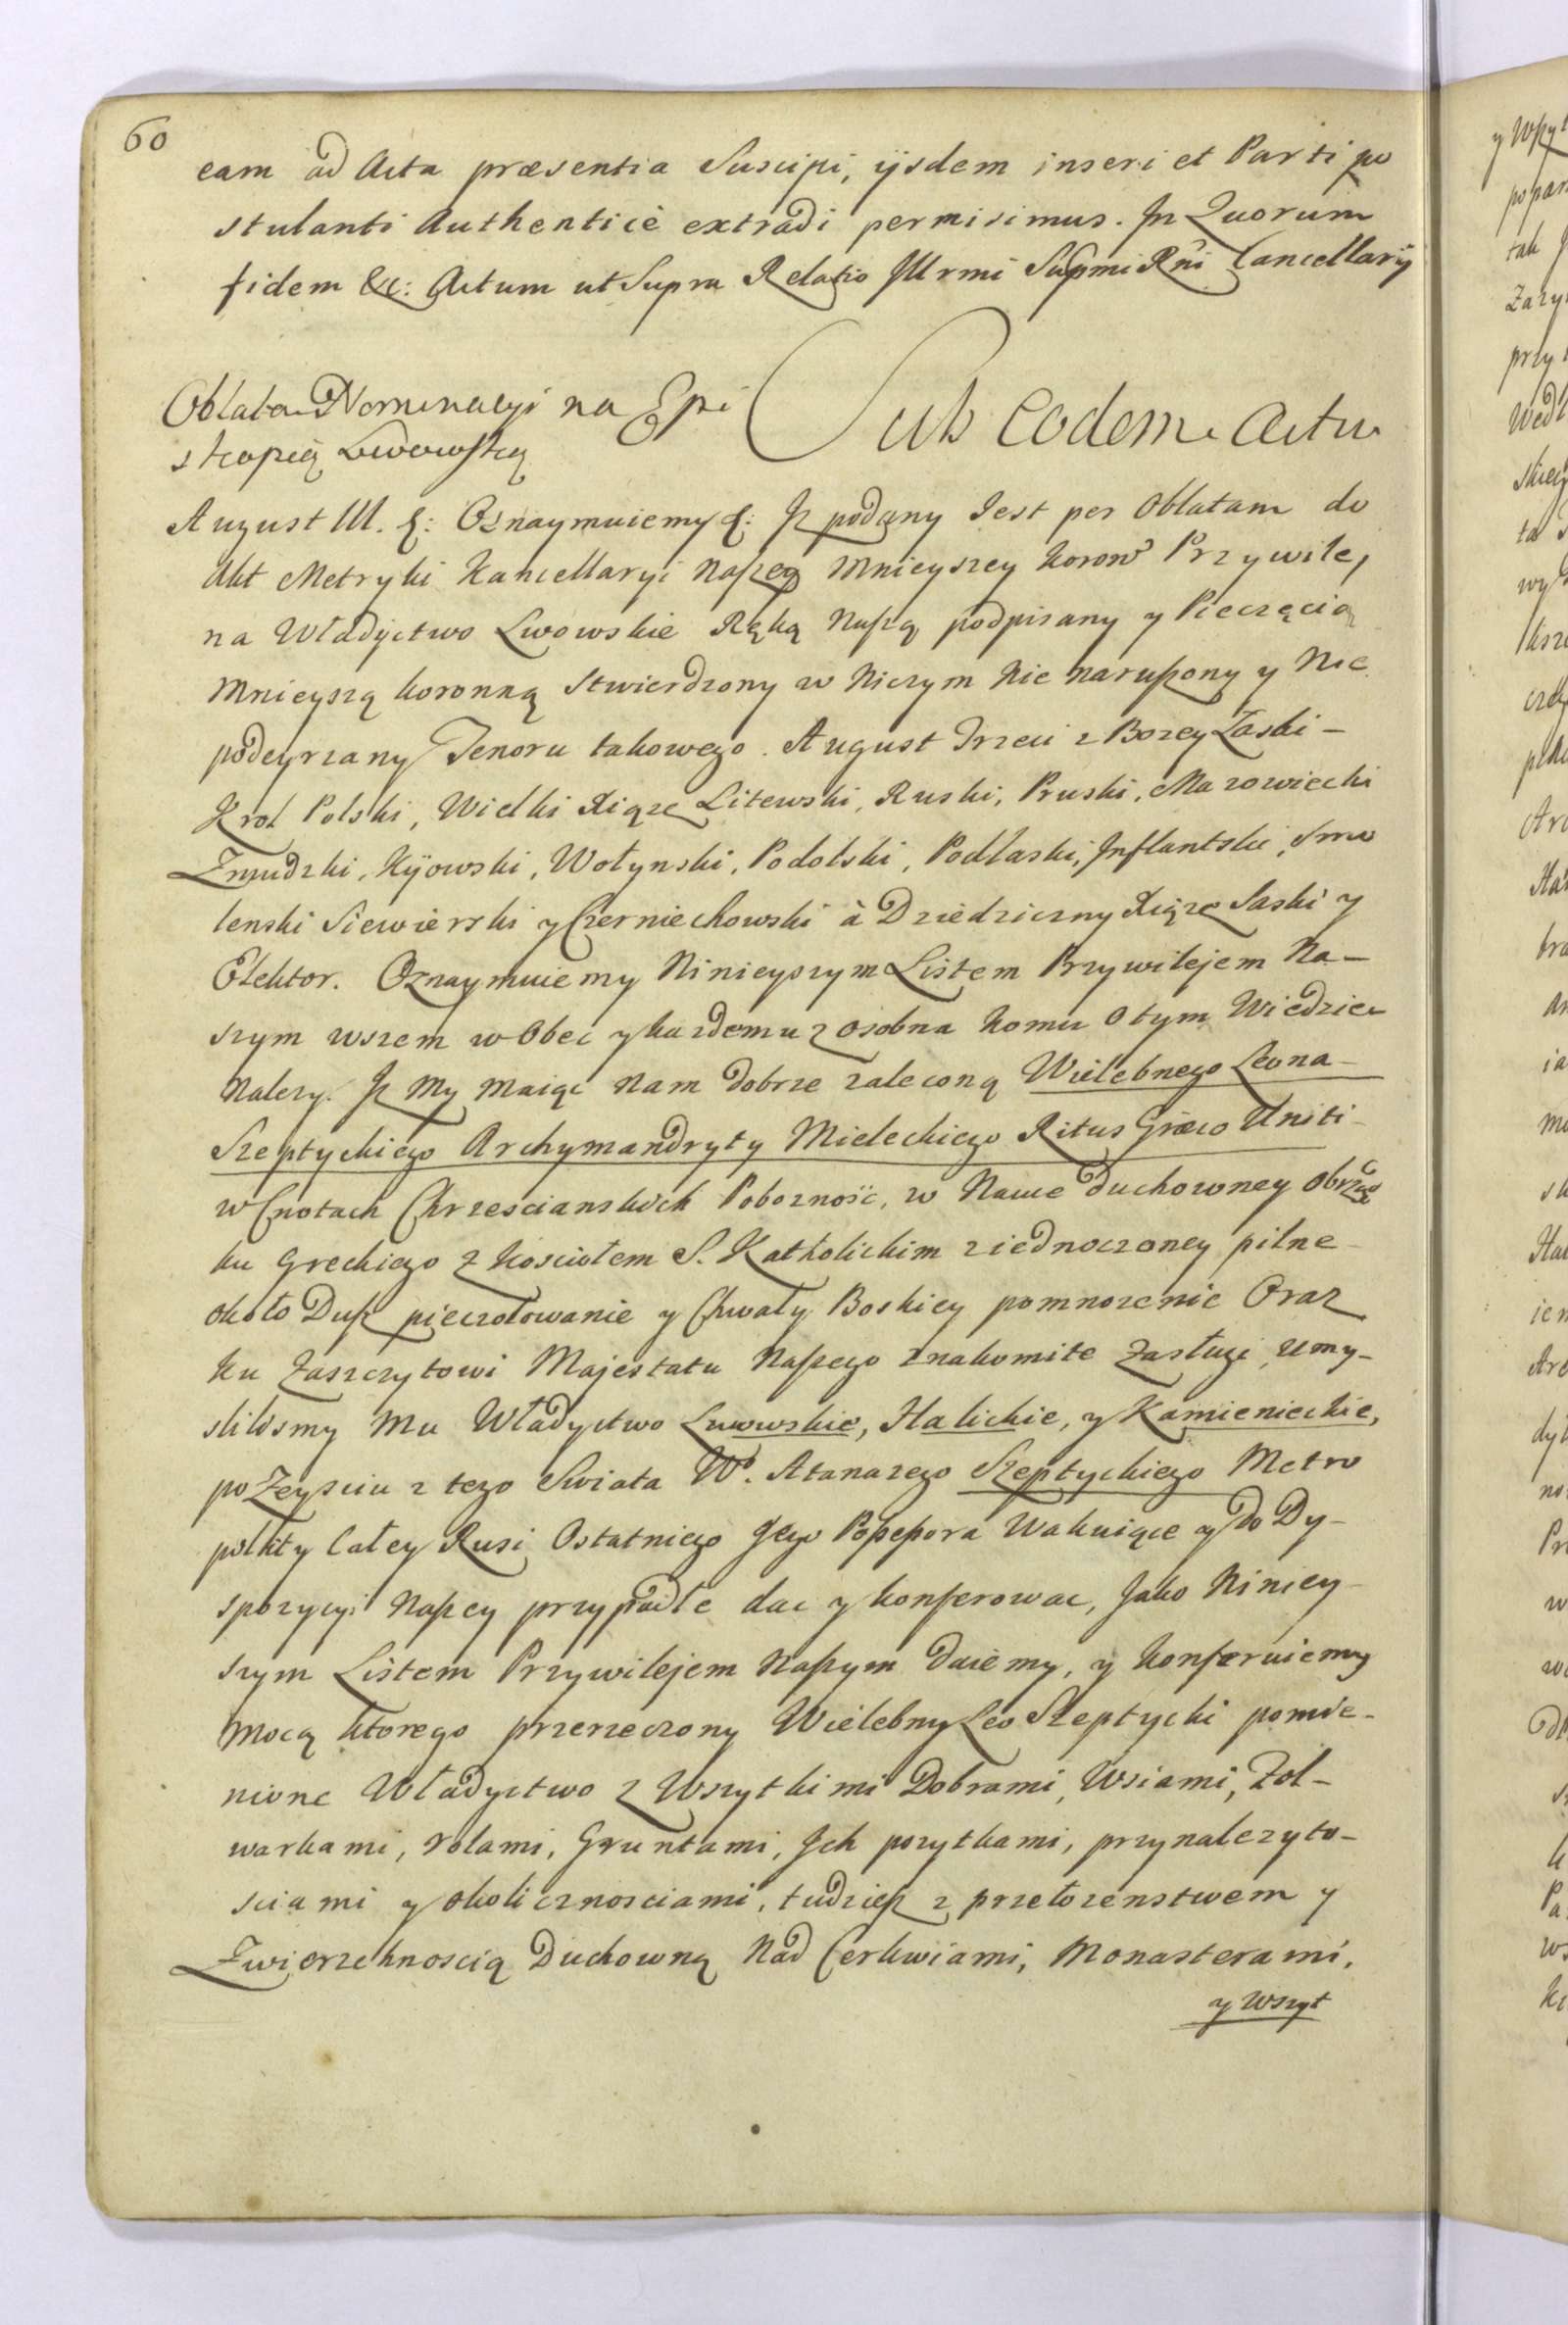 60
eam ad Acta præsentia Suscipi, ijsdem inseri et Parti po
stulanti Authenticè extradi permisimus. In Quorum
fidem &c: Actum ut Supra Relatio Illrmi Supmi Rni Cancellarij
Oblata Nominacyi na Epi
skopią Lwowską
Sub Eodem Actu
August III. &: Oznaymuiemy &: Iz podany Iest per Oblatam do
Akt Metryki Kancellaryi Naszey Mnieyszey Koron Przywiley
na Władyctwo Lwowskie Ręką Naszą podpisany y Pieczęcią
Mnieyszą koronną Stwierdzony w Niczym Nie naruszony y Nie
podeyrzany Tenoru takowego. August Trzeci z Bozey Łaski -
Krol Polski, Wielki Xiąze Litewski, Ruski, Pruski, Mazowiecki
Zmudzki, Kijowski, Wołynski, Podolski, Podlaski, Inflantski, Smo
lenski Siewierski y Czerniechowski à Dziedziczny Xiąze Saski y
Elektor. Oznaymuiemy Ninieyszym Listem Przywilejem Na-
szym wszem w Obec y kazdemu z osobna komu o tym Wiedziec
Nalezy. Iz My Maiąc Nam dobrze zaleconą Wielebnego Leona -
Szeptyckiego Archymandryty Mieleckiego Ritus Græco Uniti -
w Cnotach Chrzescianskich Poboznosc, w Nauce duchowney Obrząd
ku Greckiego z kosciołem S. Katholickim ziednoczoney pilne -
około Dusz pieczołowanie y Chwały Boskiey pomnozenie Oraz
ku Zaszczytowi Majestatu Naszego znakomite zasługi, umy-
slilismy Mu Władyctwo Lwowskie, Halickie, y Kamienieckie,
po Zeysciu z tego Swiata W°. Atanazego Szeptyckiego Metro
polity Całey Rusi Ostatniego Iego Possessora Wakuiące y do Dy-
spozycyi Naszey przypadłe dac y konferowac, Jako Niniey-
szym Listem Przywilejem Naszym daiemy, y konferuiemy
Mocą ktorego przerzeczony Wielebny Leo Szeptycki pomie-
nione Władyctwo z Wszytkimi Dobrami, Wsiami, Fol-
warkami, rolami, Gruntami, Ich pozytkami, przynalezyto-
sciami y okolicznosciami, tudziesz z przełozenstwem y
Zwierzchnoscią Duchowną Nad Cerkwiami, Monasterami,
y wszyt